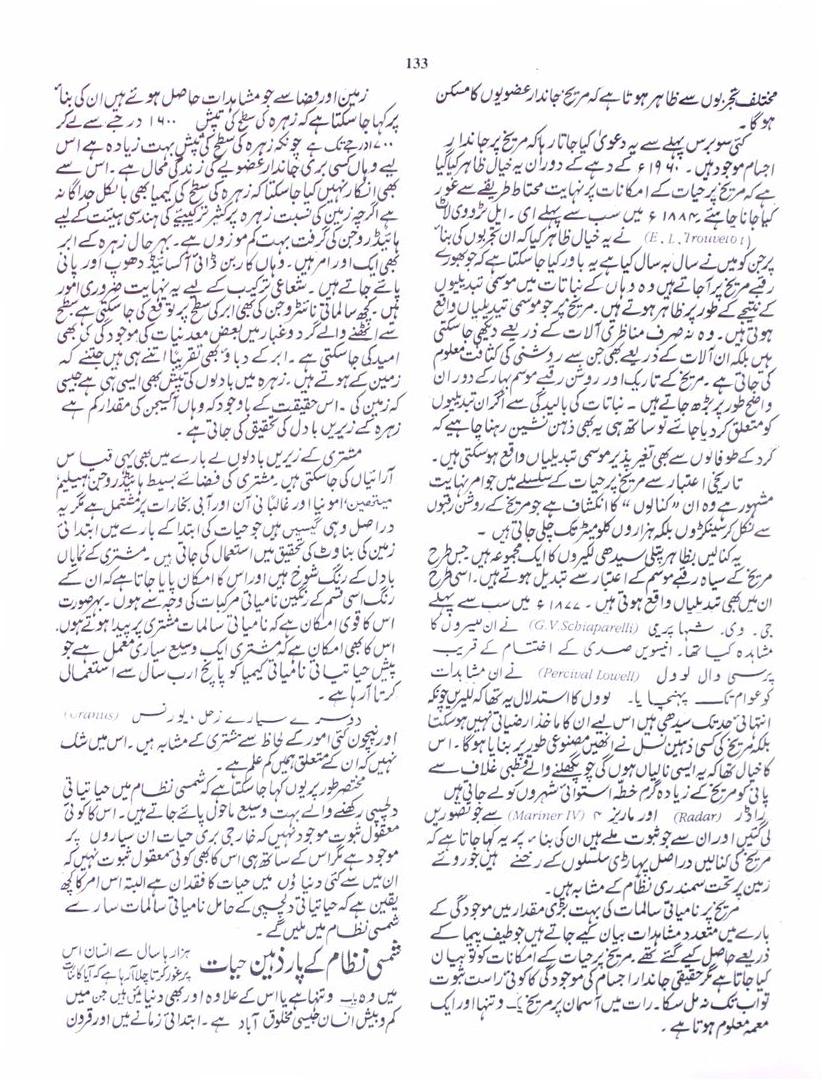 133
مختلف تجربوں سے ظاہر ہوتا ہے کہ مریخ جاندار عضویوں کا مسکن
ہوگا۔
کئی سو برس پہلے سے یہ دعویٰ کیا جاتا رہا کہ مریخ پر جاندار
اجسام موجود ہیں۔ ۱۹۶۰ء کے دہے کے دوران یہ خیال ظاہر کیا گیا
ہے کہ مریخ پر حیات کے امکانات پر نہایت محتاط طریقے سے غور
کیا جانا چاہئے ۱۸۸۴ء میں سب سے پہلے ای۔ ایل ٹرووی لاٹ
(E. L. Trouvelot) نے یہ خیال ظاہر کیا کہ ان تجربوں کی بناء
پر جن کو میں نے سال بہ سال کیا ہے یہ باور کیا جا سکتا ہے کہ جو بھورے
رقبے مریخ پر آجاتے ہیں وہ وہاں کے نباتات میں موسمی تبدیلیوں
کے نتیجے کے طور پر ظاہر ہوتے ہیں۔ مریخ پر جو موسمی تبدیلیاں واقع
ہوتی ہیں۔ وہ نہ صرف مناظری آلات کے ذریعے دیکھی جا سکتی
ہیں بلکہ ان آلات کے ذریعے بھی جن سے روشنی کی کثافت معلوم
کی جاتی ہے۔ مریخ کے تاریک اور روشن رقبے موسم بہار کے دوران
واضح طور پر بڑھ جاتے ہیں۔ نباتات کی بالیدگی سے اگر ان تبدیلیوں
کو متعلق کر دیا جائے تو ساتھ ہی یہ بھی ذہن نشین رہنا چاہیے کہ
گرد کے طوفانوں سے بھی تغیر پذیر موسمی تبدیلیاں واقع ہو سکتی ہیں۔
تاریخی اعتبار سے مریخ پر حیات کے سلسلے میں جو امر نہایت
مشہور ہے وہ ان "کنالوں" کا انکشاف ہے جو مریخ کے روشن رقبوں
سے نکل کر سینکڑوں بلکہ ہزاروں کلومیٹر تک چلی جاتی ہیں۔
یہ کنالیں بظاہر پتلی سیدھی لکیروں کا ایک مجموعہ ہیں جس طرح
مریخ کے سیاہ رقبے موسم کے اعتبار سے تبدیل ہوتے ہیں۔ اسی طرح
ان میں بھی تبدیلیاں واقع ہوتی ہیں۔ ۱۸۷۷ء میں سب سے پہلے
جی۔ وی۔ شیاپریمی (G.V.Schiaparelli) نے ان لکیروں کا
مشاہدہ کیا تھا۔ انیسویں صدی کے اختتام کے قریب
پرسی وال لوول (Percival Lowell) نے ان مشاہدات
کو عوام تک پہنچایا۔ لوول کا استدلال یہ تھا کہ لکیریں چونکہ
انتہائی حد تک سیدھی ہیں اس لیے ان کا ماخذ ارضیاتی نہیں ہو سکتا
بلکہ مریخ کی کسی ذہین نسل نے انھیں مصنوعی طور پر بنایا ہوگا۔ اس
کا خیال تھا کہ یہ ایسی نالیاں ہوں گی جو پگھلنے والے قطبی غلاف سے
پانی کو مریخ کے زیادہ گرم خطہ استوائی شہروں کو لے جاتی ہیں
راڈر (Radar) اور مارینر ۴ (Mariner IV) سے جو تصویریں
لی گئیں اور ان سے جو ثبوت ملے ہیں ان کی بناء پر یہ کہا جاتا ہے کہ
مریخ کی کنالیں دراصل پہاڑی سلسلوں کے رخنے ہیں جو روئے
زمین پر تحت سمندری نظام کے مشابہ ہیں۔
مریخ پر نامیاتی سالمات کی بہت بڑی مقدار میں موجودگی کے
بارے میں متعدد مشاہدات بیان کیے جاتے ہیں جو طیف پیما کے
ذریعے حاصل کیے گئے تھے۔ مریخ پر حیات کے امکانات کو تو بیان
کیا جاتا ہے مگر حقیقی جاندار اجسام کی موجودگی کا کوئی راست ثبوت
تو اب تک نہ مل سکا۔ رات میں آسمان پر مریخ یک و تنہا اور ایک
معمہ معلوم ہوتا ہے۔
زمین اور فضا سے جو مشاہدات حاصل ہوئے ہیں ان کی بناء
پر کہا جا سکتا ہے کہ زہرہ کی سطح کی تپش ۱۶۰۰ درجے سے لے کر
۱۷۰۰ درجہ تک ہے چونکہ زہرہ کی سطح کی تپش بہت زیادہ ہے اس
لیے وہاں کسی بری جاندار عضویے کی زندگی محال ہے۔ اس سے
بھی انکار نہیں کیا جا سکتا کہ زہرہ کی سطح کی کیمیا بھی بالکل جداگانہ
ہے اگرچہ زمین کی نسبت زہرہ پر کثیر ترکیبیے کی ہندسی ہیئت کے لیے
ہائیڈروجن کی گرفت بہت کم موزوں ہے۔ بہر حال زہرہ کے ابر
بھی ایک اور امر ہیں۔ وہاں کاربن ڈائی آکسائیڈ دھوپ اور پانی
پائے جاتے ہیں۔ شعاعی ترکیب کے لیے یہ نہایت ضروری امور
ہیں کچھ سالماتی نائٹروجن کی بھی ابر کی سطح پر توقع کی جا سکتی ہے سطح
سے اٹھنے والے گرد و غبار میں بعض معدنیات کی موجودگی کی بھی
امید کی جا سکتی ہے۔ ابر کے دباؤ بھی تقریباً اتنے ہی ہیں جتنے کہ
زمین کے ہوتے ہیں۔ زہرہ میں بادلوں کی تپش بھی ایسی ہی ہے جیسی
کہ زمین کی۔ اس حقیقت کے باوجود کہ وہاں آکسیجن کی مقدار کم ہے
زہرہ کے زیریں بادل کی تحقیق کی جاتی ہے۔
مشتری کے زیریں بادلوں کے بارے میں بھی یہی قیاس
آرائیاں کی جا سکتی ہیں۔ مشتری کی فضائے بسیط ہائیڈروجن، ہیلیم
میتھین، امونیا اور غالباً نی آن اور آبی بخارات پر مشتمل ہے مگر یہ
دراصل وہی گیسیں ہیں جو حیات کی ابتدا کے بارے میں ابتدائی
زمین کی بناوٹ کی تحقیق میں استعمال کی جاتی ہیں۔ مشتری کے نمایاں
بادل کے رنگ شوخ ہیں اور اس کا امکان پایا جاتا ہے کہ ان کے
رنگ اسی قسم کے رنگین نامیاتی مرکبات کی وجہ سے ہوں۔ بہر صورت
اس کا قوی امکان ہے کہ نامیاتی سالمات مشتری پر پیدا ہوتے ہوں۔
اس کا بھی امکان ہے کہ مشتری ایک وسیع سیاری معمل ہے جو
پیش حیاتیاتی نامیاتی کیمیا کو پانچ ارب سال سے استعمالی
کرتا آ رہا ہے۔
دوسرے سیارے زحل، یورنس (Uranus)
اور نیپچون کئی امور کے لحاظ سے مشتری کے مشابہ ہیں۔ اس میں شک
نہیں کہ ان کے متعلق ہمیں کم علم ہے۔
مختصر طور پر یوں کہا جا سکتا ہے کہ شمسی نظام میں حیاتیاتی
دلچسپی رکھنے والے بہت وسیع ماحول پائے جاتے ہیں۔ اس کا کوئی
معقول ثبوت موجود نہیں کہ خارجی بری حیات ان سیاروں پر
موجود ہے مگر اس کے ساتھ ہی اس کا بھی کوئی معقول ثبوت نہیں کہ
ان میں سے کئی دنیاؤں میں حیات کا فقدان ہے البتہ اس امر کا کچھ
یقین ہے کہ حیاتیاتی دلچسپی کے حامل نامیاتی سالمات سارے
شمسی نظام میں ملیں گے۔
شمسی نظام کے پار ذہین حیات
ہزارہا سال سے انسان اس
پر غور کرتا چلا آ رہا ہے کہ آیا کائنات
میں وہ یک و تنہا ہے یا اس کے علاوہ اور بھی دنیائیں ہیں جن میں
کم و بیش انسان جیسی مخلوق آباد ہے۔ ابتدائی زمانے میں اور قرون